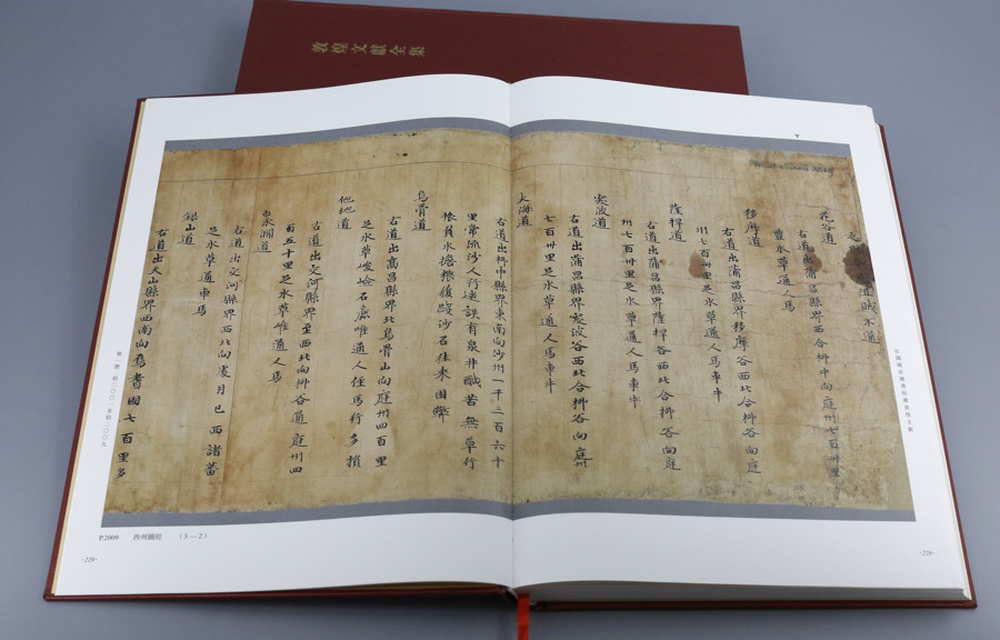 敦煌文獻全集
道賊不通
花谷道
右道出蒲昌縣界西合柳中向庭州七百卅里
豐水草通人馬
移摩道
右道出蒲昌縣界移摩谷西北合柳谷向庭
州七百卅里足水草通人馬車牛
薩捍道
右道出蒲昌縣界薩捍谷西北合柳谷向庭
州七百卅里足水草通人馬車牛
突波道
右道出蒲昌縣界突波谷西北合柳谷向庭州
七百卅里足水草通人馬車牛
大海道
右道出柳中縣界東南向沙州一千三百六十
里常流沙人行迷誤有泉井鹹苦無草行
旅負水擔糧履踐沙石往來困弊
烏骨道
右道出高昌縣界北烏骨山向庭州四百里
足水草峻嶮石麁唯通人徑馬行多損
他地道
右道出交河縣界至西北向柳谷通庭州四
百五十里足水草唯通人馬
白水澗道
右道出交河縣界西北向處月已西諸蕃
足水草通車馬
銀山道
右道出天山縣界西南向焉耆國七百里多
法國國家圖書館藏敦煌文獻
第一冊 伯二〇〇一至伯二〇〇九
P.2009 西州圖經 （3—2）
·229·
·228·